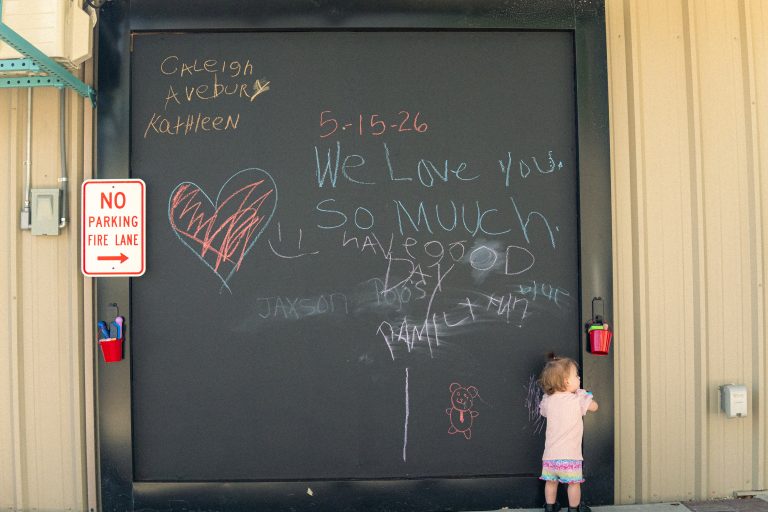 Caleigh
Avebury
Kathleen
5-15-26
We Love you
so Muuch.
NO
PARKING
FIRE LANE
have good
DAY
JAXSON POPO'S
FAMILY